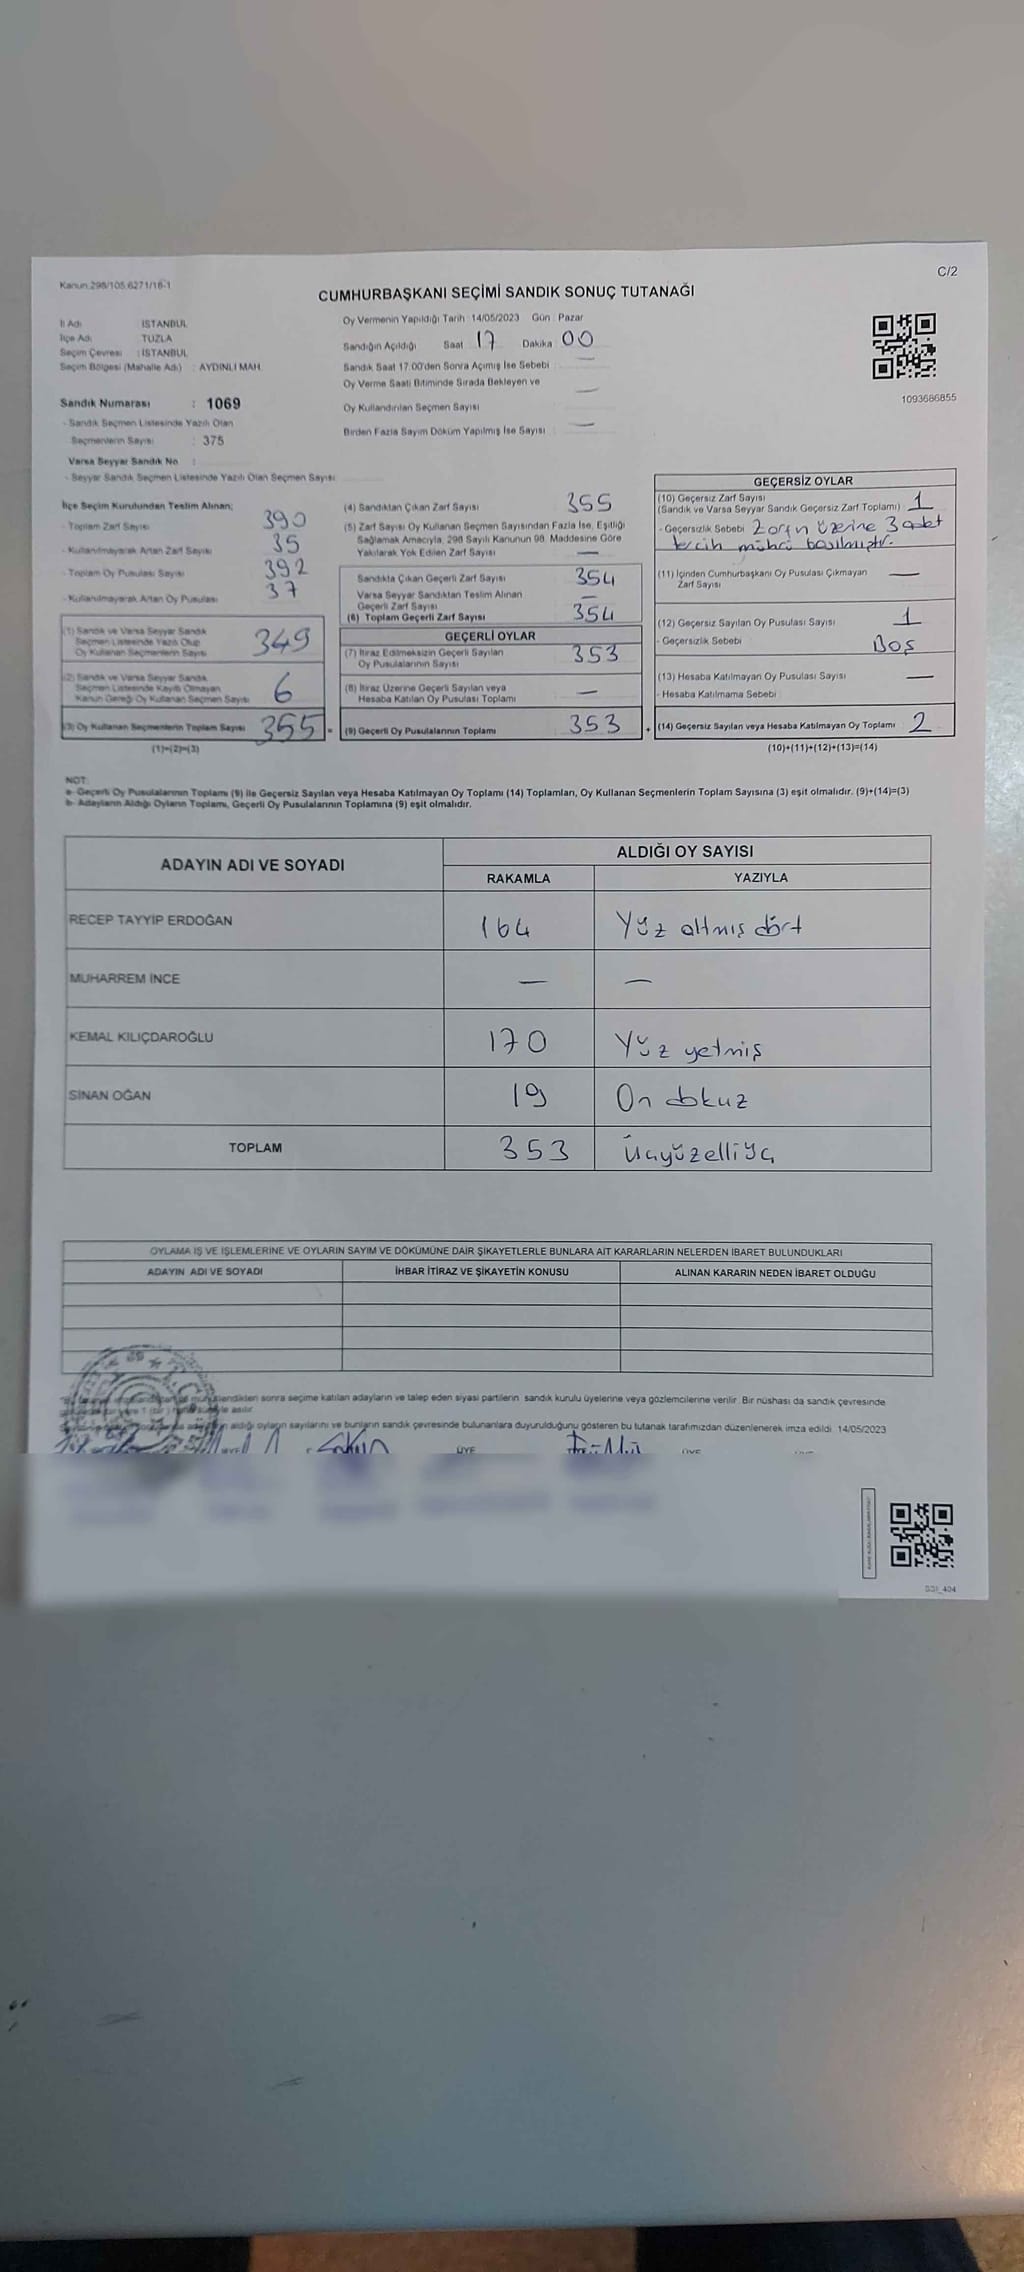 Kanun.298/105.6271/16-1
C/2
CUMHURBAŞKANI SEÇİMİ SANDIK SONUÇ TUTANAĞI
İl Adı İSTANBUL
İlçe Adı TUZLA
Seçim Çevresi : İSTANBUL
Seçim Bölgesi (Mahalle Adı) : AYDINLI MAH.
Sandık Numarası : 1069
- Sandık Seçmen Listesinde Yazılı Olan
Seçmenlerin Sayısı : 375
Varsa Seyyar Sandık No :
- Seyyar Sandık Seçmen Listesinde Yazılı Olan Seçmen Sayısı:
Oy Vermenin Yapıldığı Tarih : 14/05/2023 Gün : Pazar
Sandığın Açıldığı Saat 17 Dakika 00
Sandık Saat 17:00'den Sonra Açımış İse Sebebi : —
Oy Verme Saati Bitiminde Sırada Bekleyen ve —
Oy Kullandırılan Seçmen Sayısı
Birden Fazla Sayım Döküm Yapılmış İse Sayısı : —
1093686855
İlçe Seçim Kurulundan Teslim Alınan;
- Toplam Zarf Sayısı 390
- Kullanılmayarak Artan Zarf Sayısı 35
- Toplam Oy Pusulası Sayısı 392
- Kullanılmayarak Artan Oy Pusulası 37
(1) Sandık ve Varsa Seyyar Sandık
Seçmen Listesinde Yazılı Olup
Oy Kullanan Seçmenlerin Sayısı 349
(2) Sandık ve Varsa Seyyar Sandık
Seçmen Listesinde Kayıtlı Olmayan
Kanun Gereği Oy Kullanan Seçmen Sayısı 6
(3) Oy Kullanan Seçmenlerin Toplam Sayısı 355 =
(1)+(2)=(3)
(4) Sandıktan Çıkan Zarf Sayısı 355
(5) Zarf Sayısı Oy Kullanan Seçmen Sayısından Fazla İse, Eşitliği
Sağlamak Amacıyla, 298 Sayılı Kanunun 98. Maddesine Göre
Yakılarak Yok Edilen Zarf Sayısı —
Sandıkta Çıkan Geçerli Zarf Sayısı 354
Varsa Seyyar Sandıktan Teslim Alınan
Geçerli Zarf Sayısı —
(6) Toplam Geçerli Zarf Sayısı 354
GEÇERLİ OYLAR
(7) İtiraz Edilmeksizin Geçerli Sayılan
Oy Pusulalarının Sayısı 353
(8) İtiraz Üzerine Geçerli Sayılan veya
Hesaba Katılan Oy Pusulası Toplamı —
(9) Geçerli Oy Pusulalarının Toplamı 353 +
GEÇERSİZ OYLAR
(10) Geçersiz Zarf Sayısı
(Sandık ve Varsa Seyyar Sandık Geçersiz Zarf Toplamı) 1
- Geçersizlik Sebebi Zarfın üzerine 3 adet
tercih mührü basılmıştır.
(11) İçinden Cumhurbaşkanı Oy Pusulası Çıkmayan —
Zarf Sayısı
(12) Geçersiz Sayılan Oy Pusulası Sayısı 1
- Geçersizlik Sebebi Boş
(13) Hesaba Katılmayan Oy Pusulası Sayısı —
- Hesaba Katılmama Sebebi
(14) Geçersiz Sayılan veya Hesaba Katılmayan Oy Toplamı 2
(10)+(11)+(12)+(13)=(14)
NOT:
a- Geçerli Oy Pusulalarının Toplamı (9) ile Geçersiz Sayılan veya Hesaba Katılmayan Oy Toplamı (14) Toplamları, Oy Kullanan Seçmenlerin Toplam Sayısına (3) eşit olmalıdır. (9)+(14)=(3)
b- Adayların Aldığı Oyların Toplamı, Geçerli Oy Pusulalarının Toplamına (9) eşit olmalıdır.
ADAYIN ADI VE SOYADI
ALDIĞI OY SAYISI
RAKAMLA YAZIYLA
RECEP TAYYİP ERDOĞAN 164 Yüz altmış dört
MUHARREM İNCE — —
KEMAL KILIÇDAROĞLU 170 Yüz yetmiş
SİNAN OĞAN 19 On dokuz
TOPLAM 353 Üçyüzelliüç
OYLAMA İŞ VE İŞLEMLERİNE VE OYLARIN SAYIM VE DÖKÜMÜNE DAİR ŞİKAYETLERLE BUNLARA AİT KARARLARIN NELERDEN İBARET BULUNDUKLARI
ADAYIN ADI VE SOYADI İHBAR İTİRAZ VE ŞİKAYETİN KONUSU ALINAN KARARIN NEDEN İBARET OLDUĞU
sonra seçime katılan adayların ve talep eden siyasi partilerin sandık kurulu üyelerine veya gözlemcilerine verilir. Bir nüshası da sandık çevresinde
aldığı oyların sayılarını ve bunların sandık çevresinde bulunanlara duyurulduğunu gösteren bu tutanak tarafımızdan düzenlenerek imza edildi. 14/05/2023
ÜYE